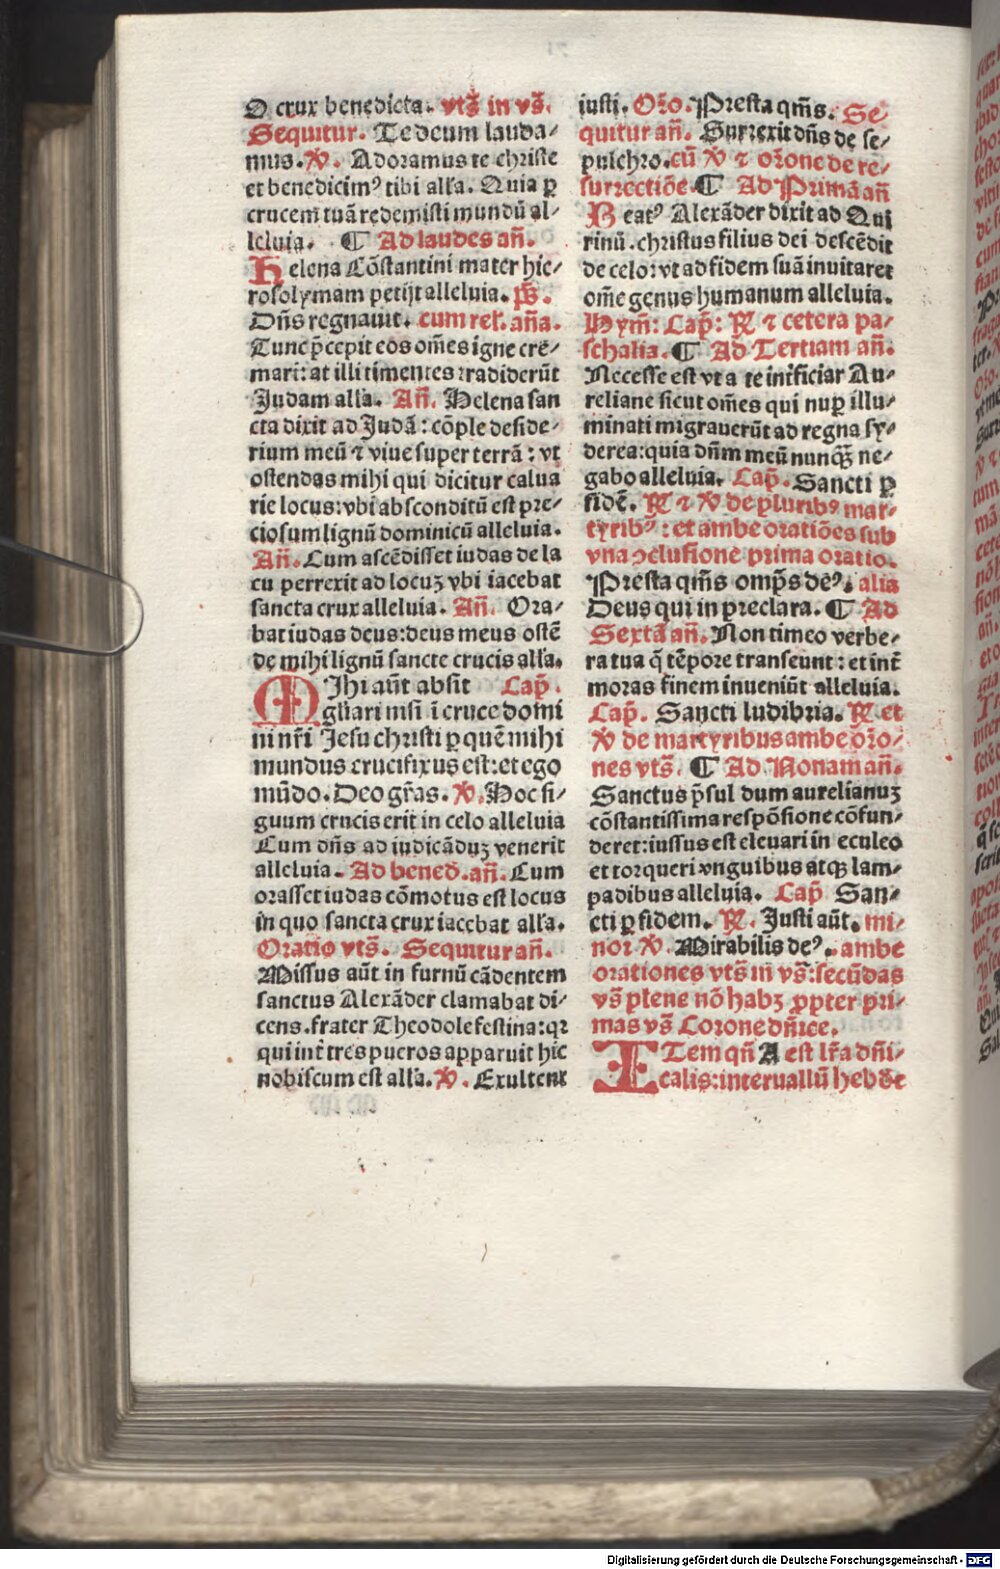 O crux benedicta. vts̄ in vs̄.
Sequitur. Te deum lauda⸗
mus. V̷. Adoramus te christe
et benedicimꝰ tibi all'a. Quia ꝑ
crucem tuā redemisti mundū al⸗
leluia. ¶ Ad laudes añ.
Helena Cōstantini mater hie⸗
rosolymam petijt alleluia. ps̄.
Dñs regnauit. cum rel'. aña.
Tunc p̄cepit eos om̄es igne cre⸗
mari: at illi timentes tradiderūt
Judam all'a. Añ. Helena san
cta dixit ad Judā: cōple deside⸗
rium meū ⁊ viue super terrā: vt
ostendas mihi qui dicitur calua
rie locus: vbi absconditū est pre⸗
ciosum lignū dominicū alleluia.
Añ. Cum ascēdisset iudas de la
cu perrexit ad locuꝫ vbi iacebat
sancta crux alleluia. Añ. Ora⸗
bat iudas deus: deus meus ostē
de mihi lignū sancte crucis all'a.
MIhi aūt absit Cap̄.
gl'iari nisi ī cruce domi
ni nr̄i Jesu christi ꝑ quē mihi
mundus crucifixus est: et ego
mūdo. Deo gr̄as. V̷. Hoc si⸗
gnum crucis erit in celo alleluia
Cum dñs ad iudicāduꝫ venerit
alleluia. Ad bened̄. añ. Cum
orasset iudas cōmotus est locus
in quo sancta crux iacebat all'a.
Oratio vts̄. Sequitur añ.
Missus aūt in furnū cādentem
sanctus Alexāder clamabat di⸗
cens. frater Theodole festina: qꝛ
qui int̄ tres pueros apparuit hic
nobiscum est all'a. V̷. Exultent
iusti. Or̄o. Presta qm̄s. Se⸗
quitur añ. Surrexit dñs de se⸗
pulchro. cū V̷ ⁊ or̄one de re⸗
surrectiōe. ¶ Ad Primā añ
Beatꝰ Alexāder dixit ad Qui
rinū. christus filius dei descēdit
de celo: vt ad fidem suā inuitaret
om̄e genus humanum alleluia.
Hym̄: Cap̄: R̷ ⁊ cetera pa⸗
schalia. ¶ Ad Tertiam añ.
Necesse est vt a te int̄ficiar Au⸗
reliane sicut om̄es qui nuꝑ illu⸗
minati migrauerūt ad regna sy⸗
derea: quia dñm meū nunqꝫ ne⸗
gabo alleluia. Cap̄. Sancti ꝑ
fidē. R̷ ⁊ V̷ de pluribꝰ mar⸗
tyribꝰ: et ambe oratiōes sub
vna ꝯclusione prima oratio.
Presta qm̄s omp̄s deꝰ. alia
Deus qui in preclara. ¶ Ad
Sextā añ. Non timeo verbe⸗
ra tua q̄ tēpore transeunt: et int̄
moras finem inueniūt alleluia.
Cap̄. Sancti ludibria. R̷ et
V̷ de martyribus ambe or̄o⸗
nes vts̄. ¶ Ad Nonam añ.
Sanctus p̄sul dum aurelianuꝫ
cōstantissima respōsione cōfun⸗
deret: iussus est eleuari in eculeo
et torqueri vnguibus atqꝫ lam⸗
padibus alleluia. Cap̄ San⸗
cti ꝑ fidem. R̷. Justi aūt. mi⸗
nor V̷. Mirabilis deꝰ. ambe
orationes vts̄ in vs̄: secūdas
vs̄ plene nō habꝫ ꝓpter pri⸗
mas vs̄ Corone dn̄ice.
ITem qn̄ A est lr̄a dn̄i⸗
calis: interuallū hebde
Digitalisierung gefördert durch die Deutsche Forschungsgemeinschaft - DFG